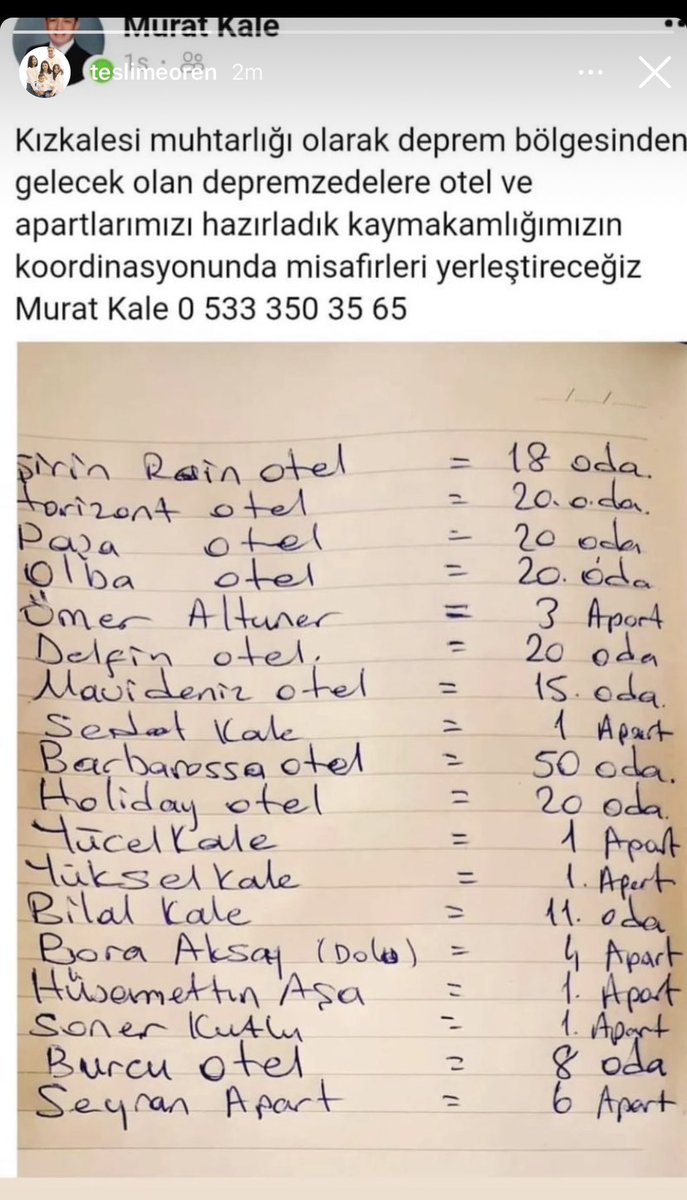 Murat Kale
1s
teslimeoren 2m
Kızkalesi muhtarlığı olarak deprem bölgesinden
gelecek olan depremzedelere otel ve
apartlarımızı hazırladık kaymakamlığımızın
koordinasyonunda misafirleri yerleştireceğiz
Murat Kale 0 533 350 35 65
/ /
Şirin Rain otel = 18 oda.
Horizont otel = 20. o.da.
Paşa otel = 20 oda
Olba otel = 20. oda
Ömer Altuner = 3 Apart
Delfin otel. = 20 oda
Mavideniz otel = 15. oda.
Sedat Kale = 1 Apart
Barbarossa otel = 50 oda.
Holiday otel = 20 oda.
Yücel Kale = 1 Apart
Yüksel Kale = 1. Apart
Bilal Kale = 11. oda
Bora Aksay (Dolu) = 4 Apart
Hüsemettin Aşa = 1. Apart
Soner Kutlu = 1. Apart
Burcu otel = 8 oda
Seyran Apart = 6 Apart